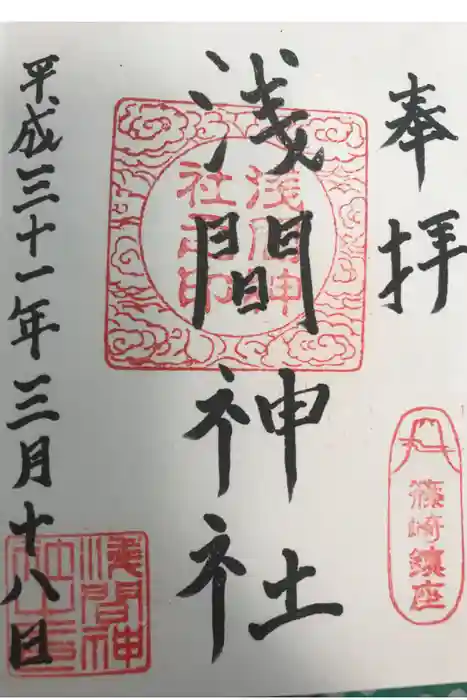 奉拝
篠崎鎮座
浅間神社
浅間神社之印
平成三十一年三月十八日
浅間神